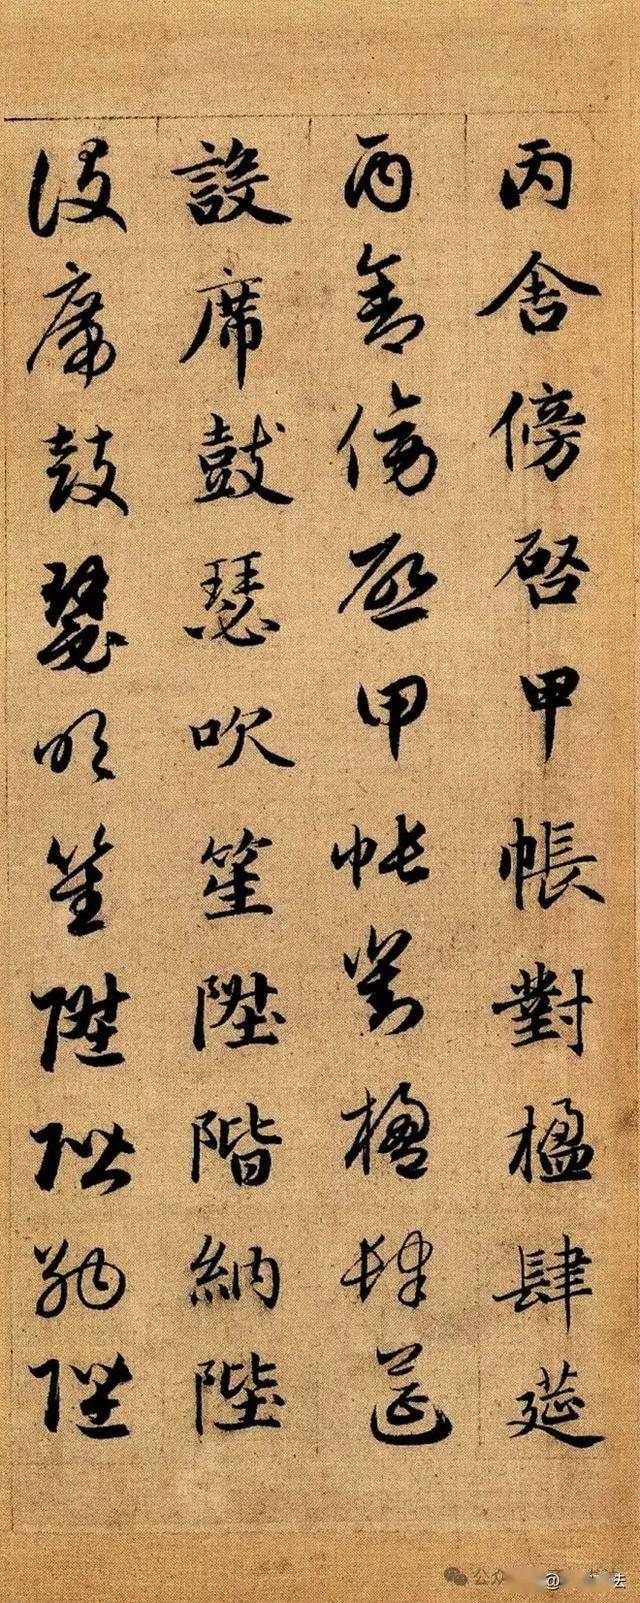 丙舍傍啓甲帳對楹肆筵
丙舍傍啓甲帳對楹肆筵
設席鼓瑟吹笙陞階納陛
設席鼓瑟吹笙陞階納陛
公众
@
去